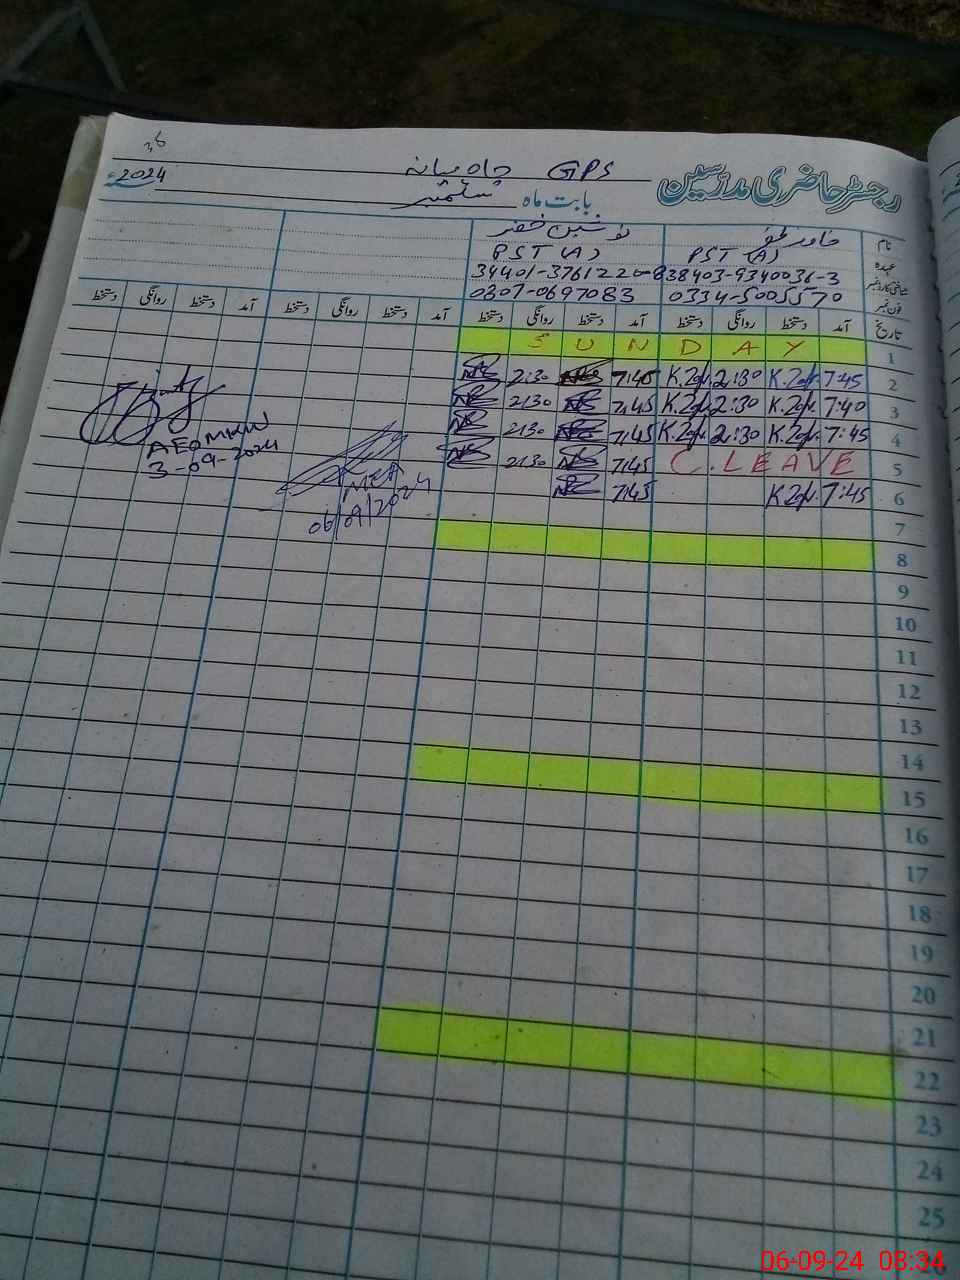 رجسٹر حاضری مدرسین GPS چاہ میانہ
بابت ماہ ستمبر 2024ء
نام خاور ظفر نوشین خضر
عہدہ PST (A) PST (A)
شناختی کارڈ نمبر 38403-9340036-3 34401-3761220-8
فون نمبر 0334-5005570 0307-0697083
تاریخ آمد دستخط روانگی دستخط آمد دستخط روانگی دستخط آمد دستخط روانگی دستخط آمد دستخط روانگی دستخط
1 SUNDAY
2 7:45 K.Zafr. 2:30 K.Zafr. 7:45 2:30
3 7:40 K.Zafr. 2:30 K.Zafr. 7:45 2:30
4 7:45 K.Zafr. 2:30 K.Zafr. 7:45 2:30
5 C.LEAVE 7:45 2:30
6 7:45 K.Zafr. 7:45
AEO MKW
3-09-2024
MEA
06/09/2024
7
8
9
10
11
12
13
14
15
16
17
18
19
20
21
22
23
24
25
26
06-09-24 08:34